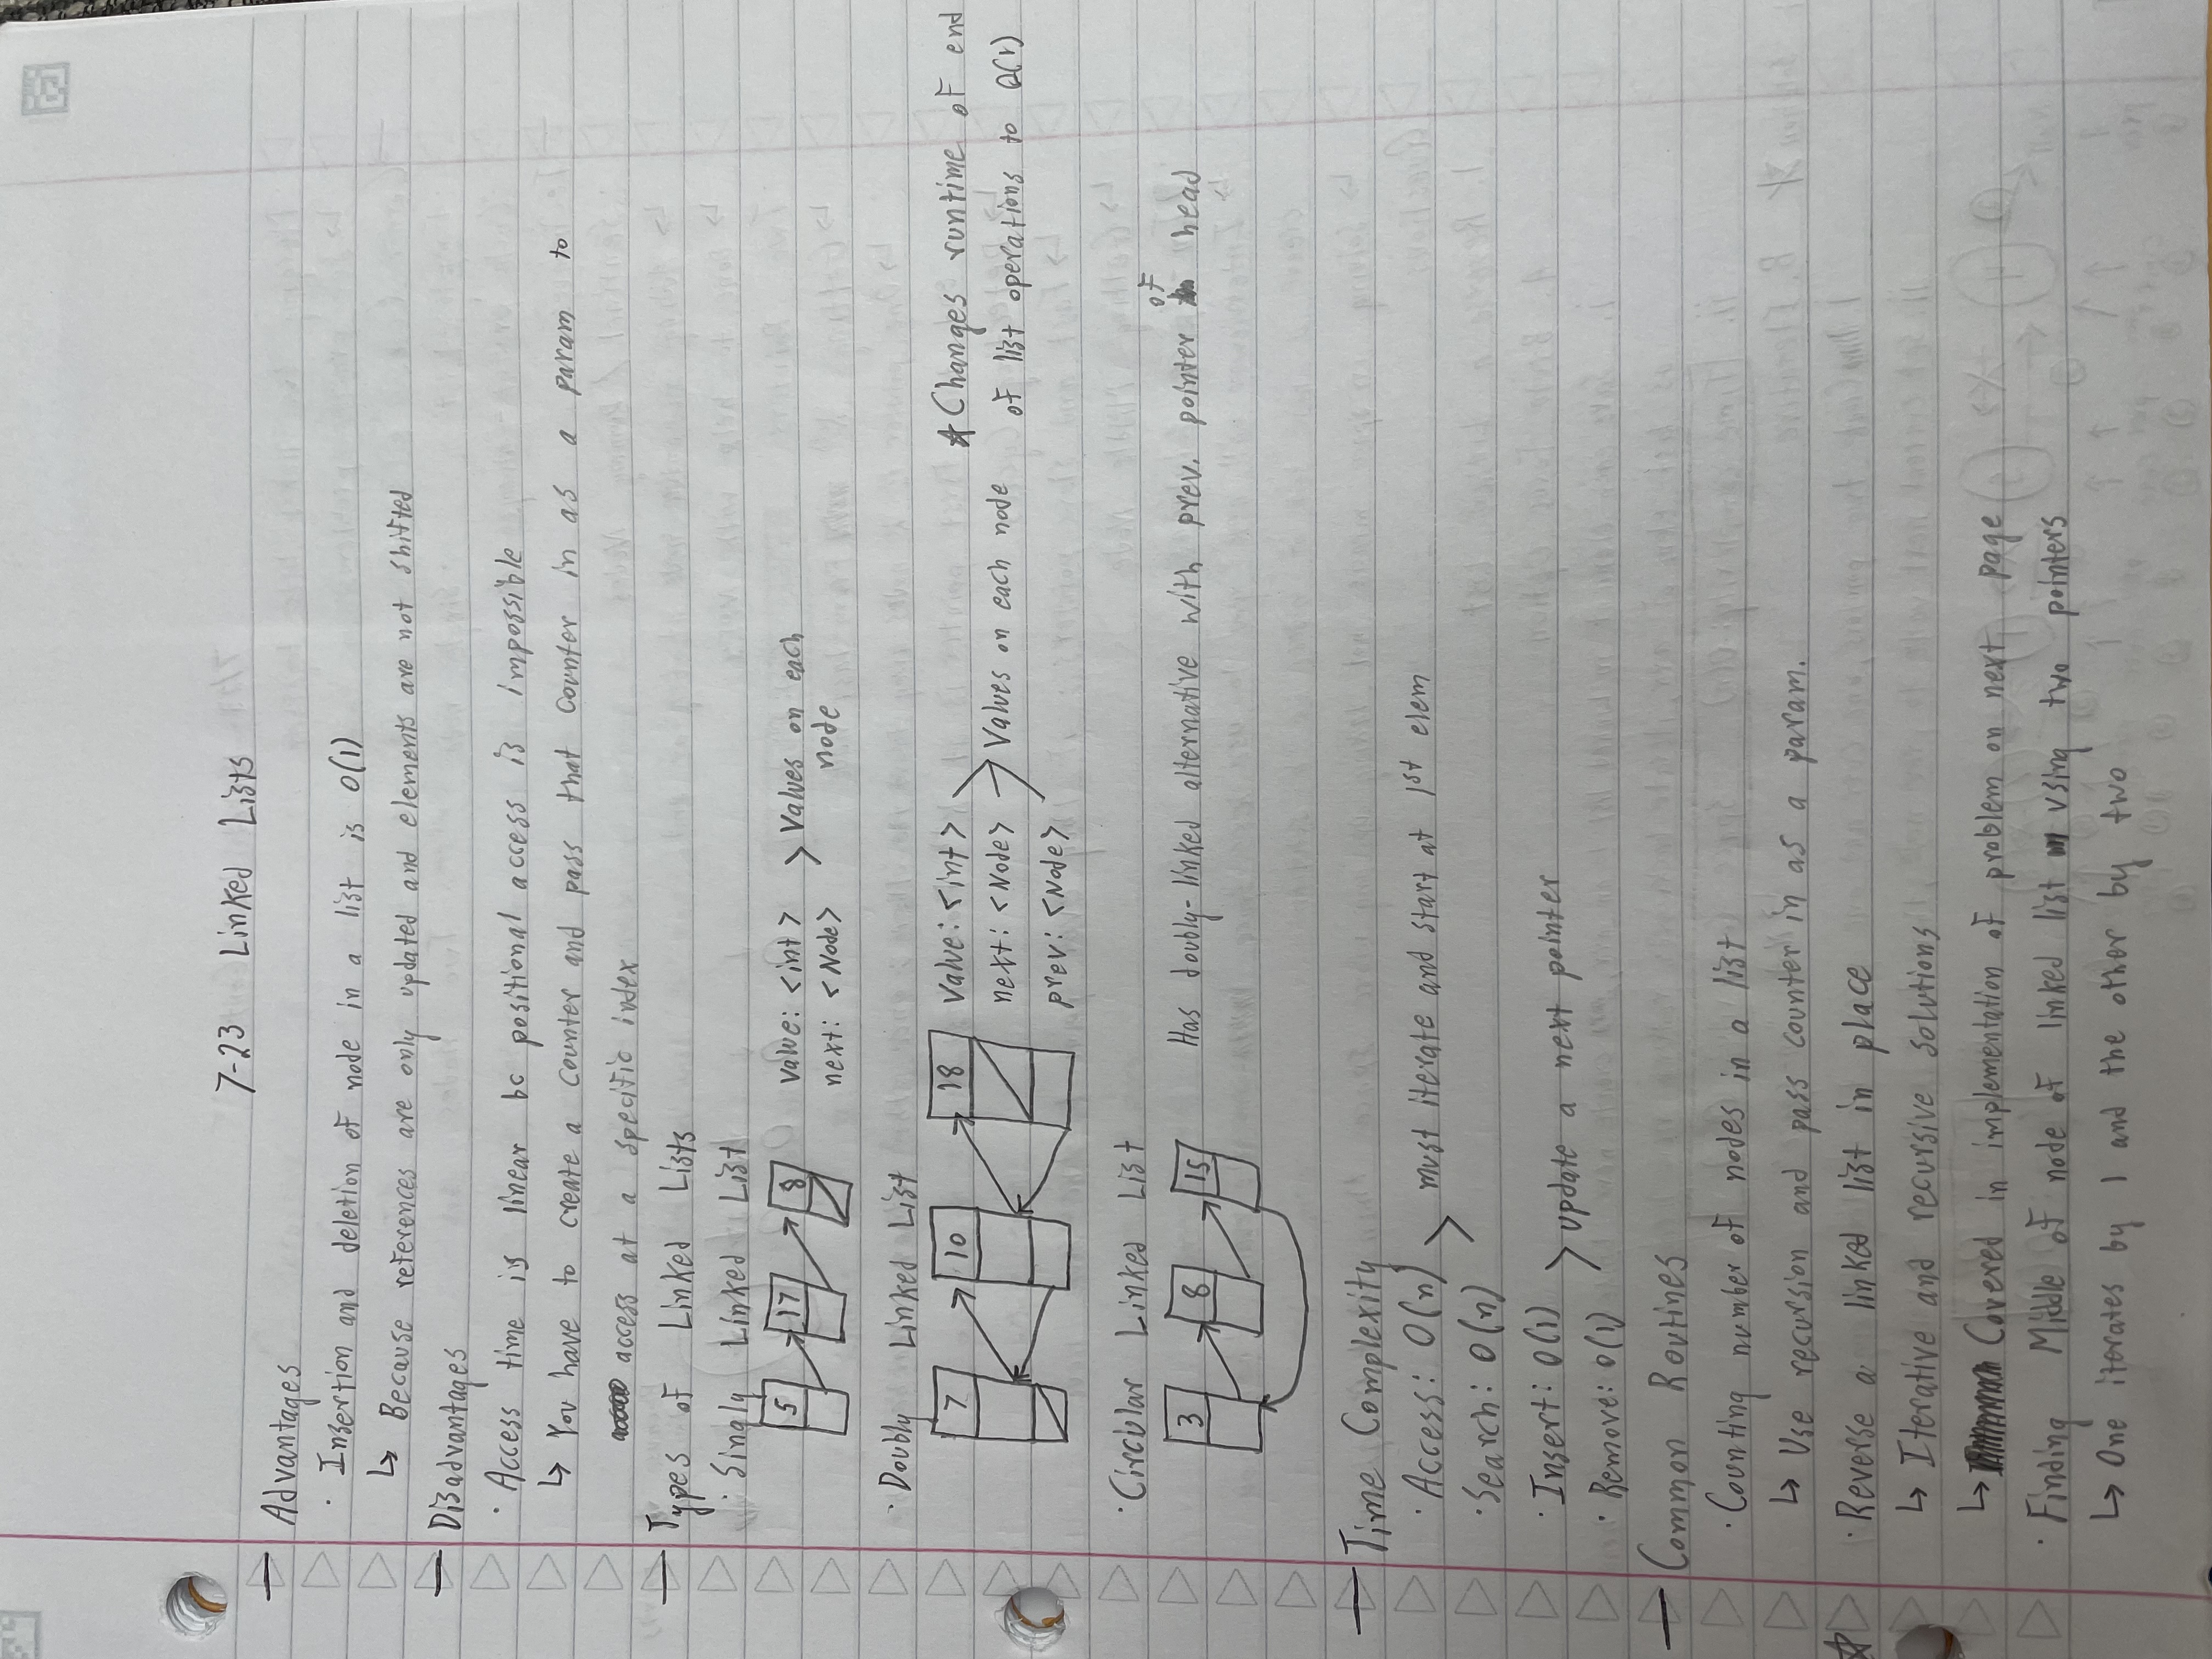 7-23 Linked Lists
Advantages
· Insertion and deletion of node in a list is O(1)
↳ Because references are only updated and elements are not shifted
Disadvantages
· Access time is linear bc positional access is impossible
↳ You have to create a counter and pass that counter in as a param to
access at a specific index
Types of Linked Lists
· Singly Linked List
5 17 8 value: <int> > Values on each
next: <Node> node
· Doubly Linked List
7 10 18 value: <int> ☆ Changes runtime of end
next: <Node> → Values on each node of list operations to O(1)
prev: <Node>
· Circular Linked List
3 8 15 Has doubly-linked alternative with prev. pointer of head
Time Complexity
· Access: O(n) > must iterate and start at 1st elem
· Search: O(n)
· Insert: O(1) > update a next pointer
· Remove: O(1)
Common Routines
· Counting number of nodes in a list
↳ Use recursion and pass counter in as a param.
☆ · Reverse a linked list in place
↳ Iterative and recursive solutions
↳ Covered in implementation of problem on next page
· Finding Middle of node of linked list using two pointers
↳ One iterates by 1 and the other by two